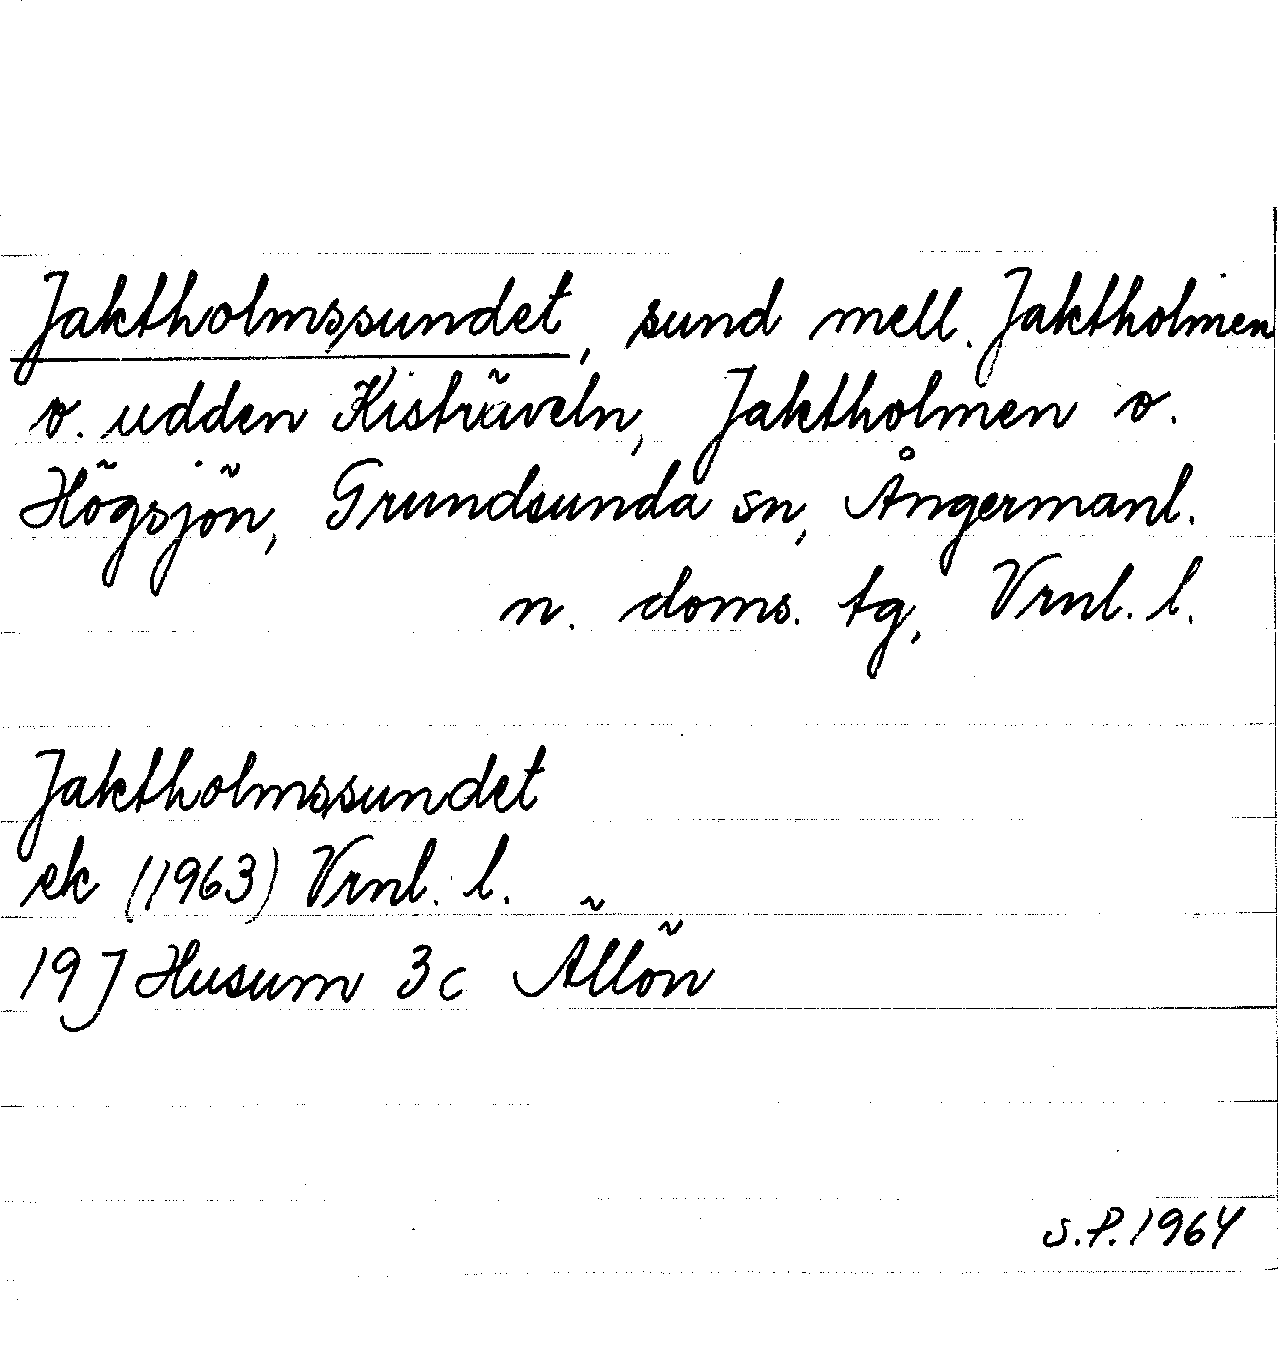 Jaktholmssundet, sund mell. Jaktholmen
o. udden Kisträveln, Jaktholmen o.
Högsjön, Grundsunda sn, Ångermanl.
n. doms. tg, Vrnl. l.
Jaktholmssundet
ek (1963) Vrnl. l.
19J Husum 3c Ällön
S.P. 1964